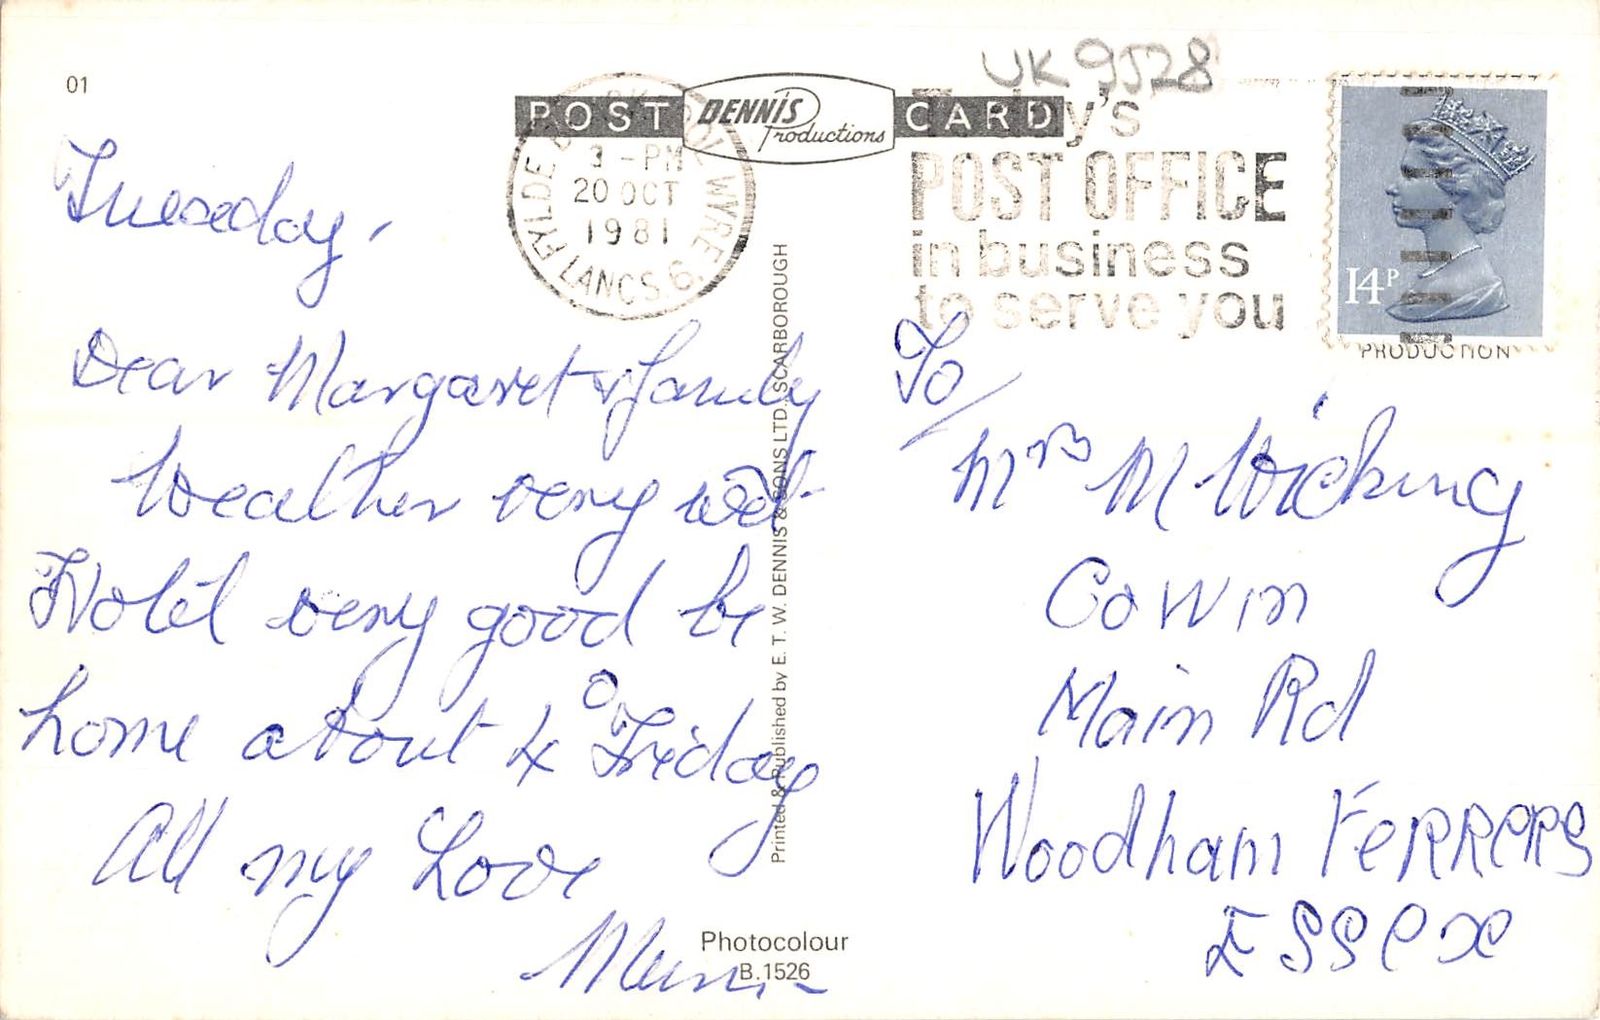 01
UK 9528
POST DENNIS Productions CARD
3-PM
20 OCT
1981
FYLDE WYRE
LANCS. 6
y's
POST OFFICE
in business
to serve you
14P
PRODUCTION
Tuesday,
Dear Margaret & family
Weather very wet
Hotel very good be
home about 4 o Friday
All my Love
Printed & Published by E. T. W. DENNIS & SONS LTD., SCARBOROUGH
Photocolour
B.1526
To/
Mrs M Wicking
Cowin
Main Rd
Woodham FeRReRS
ESSex